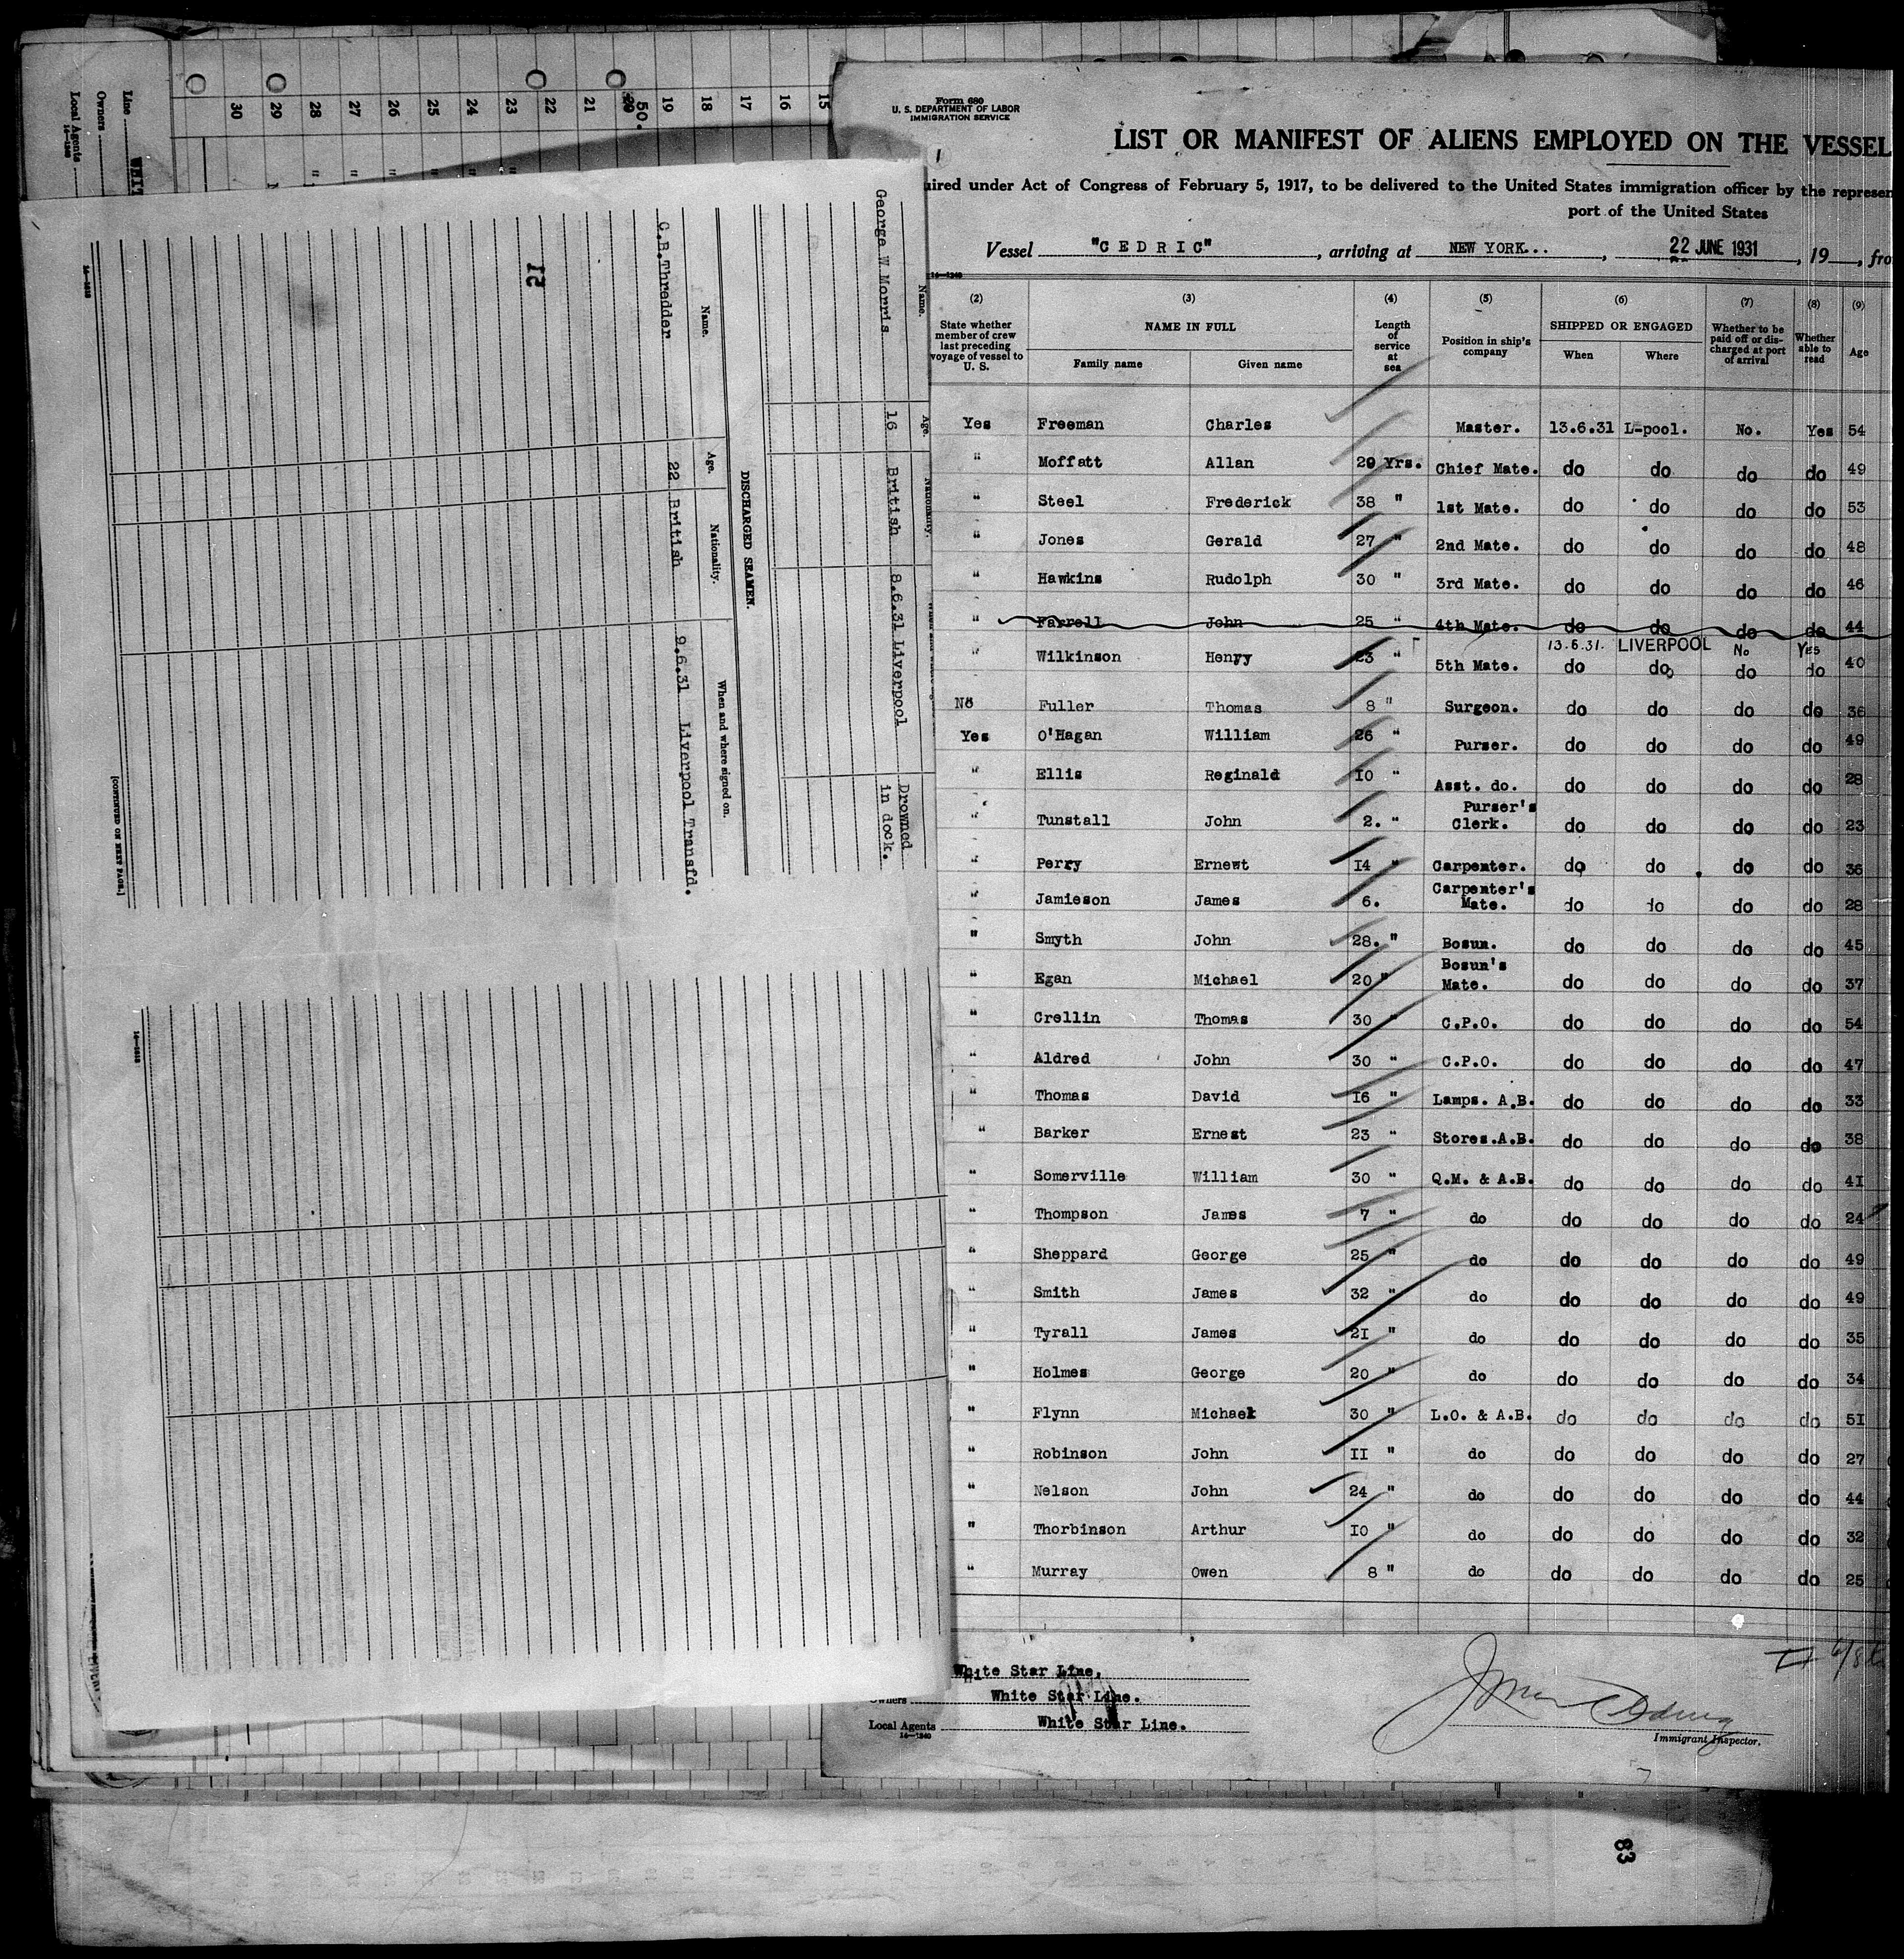 Form 680
U. S. DEPARTMENT OF LABOR
IMMIGRATION SERVICE
LIST OR MANIFEST OF ALIENS EMPLOYED ON THE VESSEL
uired under Act of Congress of February 5, 1917, to be delivered to the United States immigration officer by the represen
port of the United States
Vessel "CEDRIC", arriving at NEW YORK..., 22 JUNE 1931, 19 , fro
(2) (3) (4) (5) (6) (7) (8) (9)
State whether member of crew last preceding voyage of vessel to U. S. NAME IN FULL Family name Given name Length of service at sea Position in ship's company SHIPPED OR ENGAGED When Where Whether to be paid off or discharged at port of arrival Whether able to read Age
Yes Freeman Charles Master. 13.6.31 L-pool. No. Yes 54
" Moffatt Allan 29 Yrs. Chief Mate. do do do do 49
" Steel Frederick 38 " 1st Mate. do do do do 53
" Jones Gerald 27 " 2nd Mate. do do do do 48
" Hawkins Rudolph 30 " 3rd Mate. do do do do 46
" Farrell John 25 " 4th Mate. do do do do 44
13.6.31. LIVERPOOL No Yes
" Wilkinson Henry 23 " 5th Mate. do do do do 40
No Fuller Thomas 8 " Surgeon. do do do do 36
Yes O'Hagan William 26 " Purser. do do do do 49
" Ellis Reginald 10 " Asst. do. do do do do 28
" Tunstall John 2. " Purser's Clerk. do do do do 23
" Perry Ernewt 14 " Carpenter. do do do do 36
" Jamieson James 6. Carpenter's Mate. do do do do 28
" Smyth John 28. " Bosun. do do do do 45
" Egan Michael 20 " Bosun's Mate. do do do do 37
" Crellin Thomas 30 " C.P.O. do do do do 54
" Aldred John 30 " C.P.O. do do do do 47
" Thomas David 16 " Lamps. A.B. do do do do 33
" Barker Ernest 23 " Stores.A.B. do do do do 38
" Somerville William 30 " Q.M. & A.B. do do do do 41
" Thompson James 7 " do do do do do 24
" Sheppard George 25 " do do do do do 49
" Smith James 32 " do do do do do 49
" Tyrall James 21 " do do do do do 35
" Holmes George 20 " do do do do do 34
" Flynn Michael 30 " L.O. & A.B. do do do do 51
" Robinson John 11 " do do do do do 27
" Nelson John 24 " do do do do do 44
" Thorbinson Arthur 10 " do do do do do 32
" Murray Owen 8 " do do do do do 25
White Star Line,
Owners White Star Line.
Local Agents White Star Line.
14—1240
Immigrant Inspector.
83
Name. Age. Nationality.
George W Morris 16 British 8.6.31 Liverpool Drowned in dock.
DISCHARGED SEAMEN.
Name. Age. Nationality. When and where signed on.
C.B.Thredder 22 British 9.6.31 Liverpool Transfd.
12
[CONTINUED ON NEXT PAGE.]
15
16
17
18
19
50.
21
22
23
24
25
26
27
28
29
30
Line WHIT
Owners
Local Agents